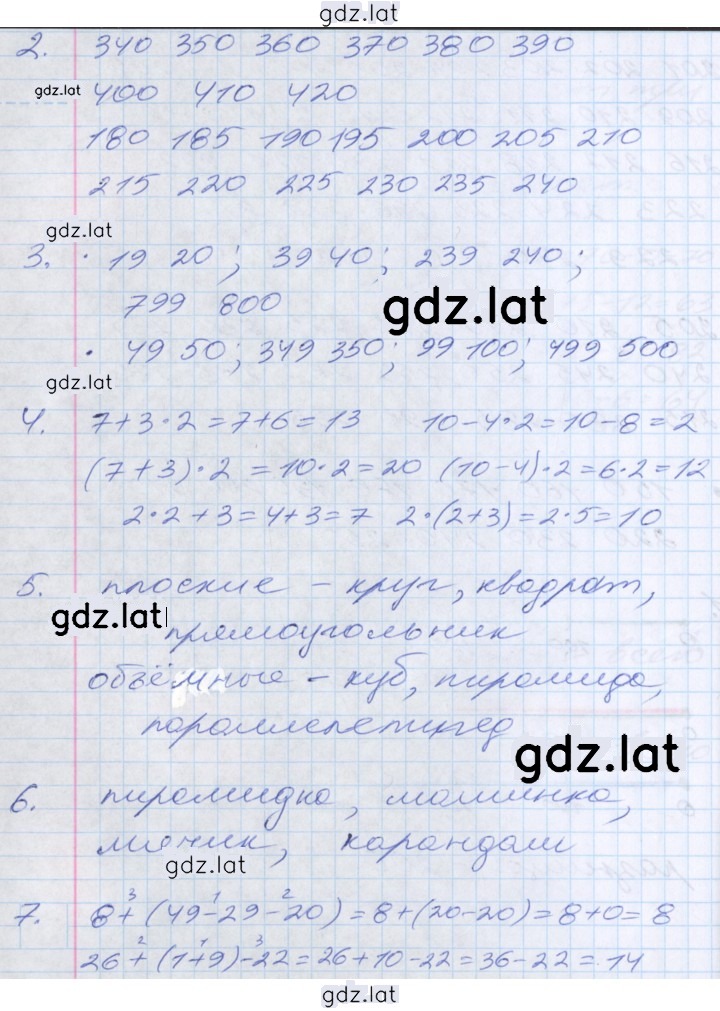 gdz.lat
2. 340 350 360 370 380 390
gdz.lat
400 410 420
180 185 190 195 200 205 210
215 220 225 230 235 240
gdz.lat
3. · 19 20; 39 40; 239 240;
799 800
gdz.lat
· 49 50; 349 350; 99 100; 499 500
gdz.lat
4. 7+3·2=7+6=13 10-4·2=10-8=2
(7+3)·2=10·2=20 (10-4)·2=6·2=12
2·2+3=4+3=7 2·(2+3)=2·5=10
5. плоские - круг, квадрат,
gdz.lat
прямоугольник
объёмные - куб, пирамида,
параллелепипед
gdz.lat
6. пирамидка, машинка,
мячик, карандаш
gdz.lat
3 1 2
7. 8+(49-29-20)=8+(20-20)=8+0=8
2 1 3
26+(1+9)-22=26+10-22=36-22=14
gdz.lat